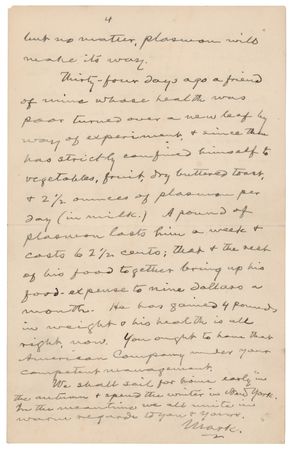 4
but no matter, plasmon will
make its way.
Thirty-four days ago a friend
of mine whose health was
poor turned over a new leaf by
way of experiment, & since then
has strictly confined himself to
vegetables, fruit, dry buttered toast,
& 2 1/2 ounces of plasmon per
day (in milk.) A pound of
plasmon lasts him a week &
costs 62 1/2 cents; that & the rest
of his food together bring up his
food-expense to nine dollars a
month. He has gained 4 pounds
in weight & his health is all
right, now. You ought to have that
American Company under your
competent management.
We shall sail for home early in
the autumn & spend the winter in New York.
In the meantime we all unite in
warm regards to you & yours.
Mark.